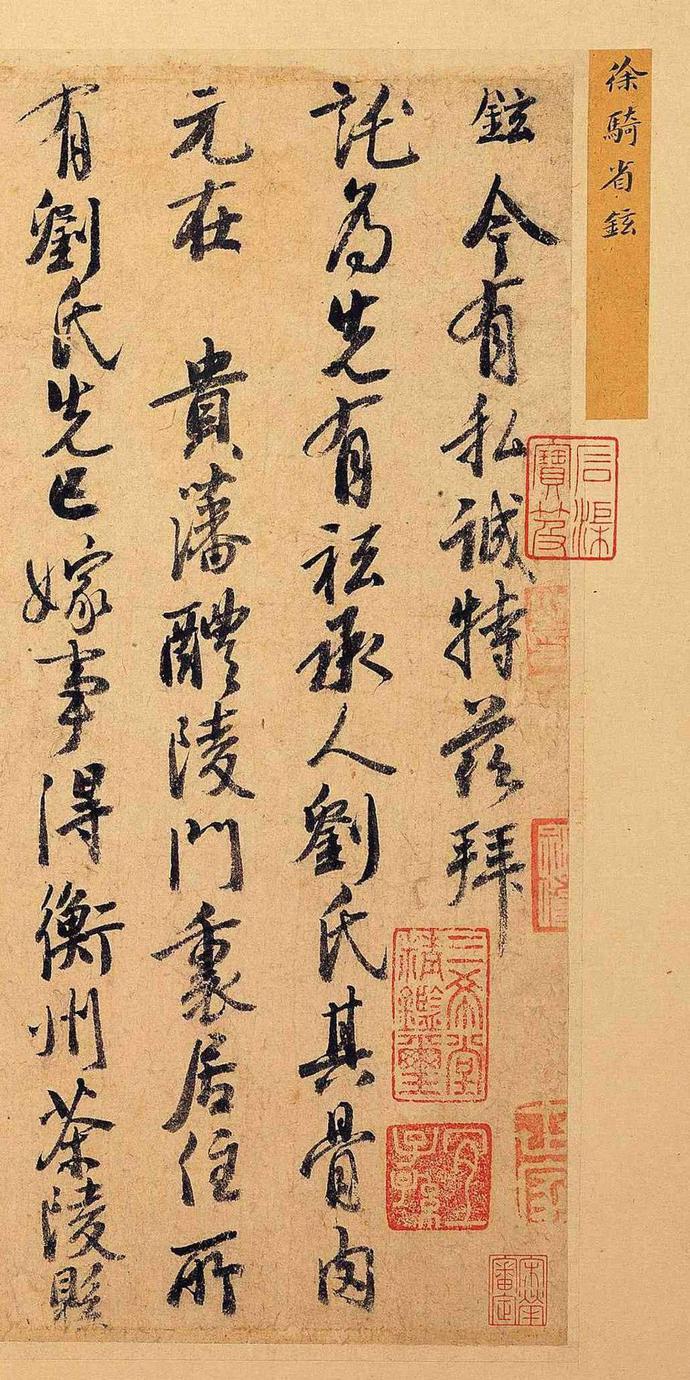 徐騎省鉉
鉉今有私誠特茲拜
託為先有祗承人劉氏其骨肉
元在 貴藩醴陵門裏居住所
有劉氏先已嫁事得衡州茶陵縣
三希堂精鑑璽
宜子孫
宋犖審定